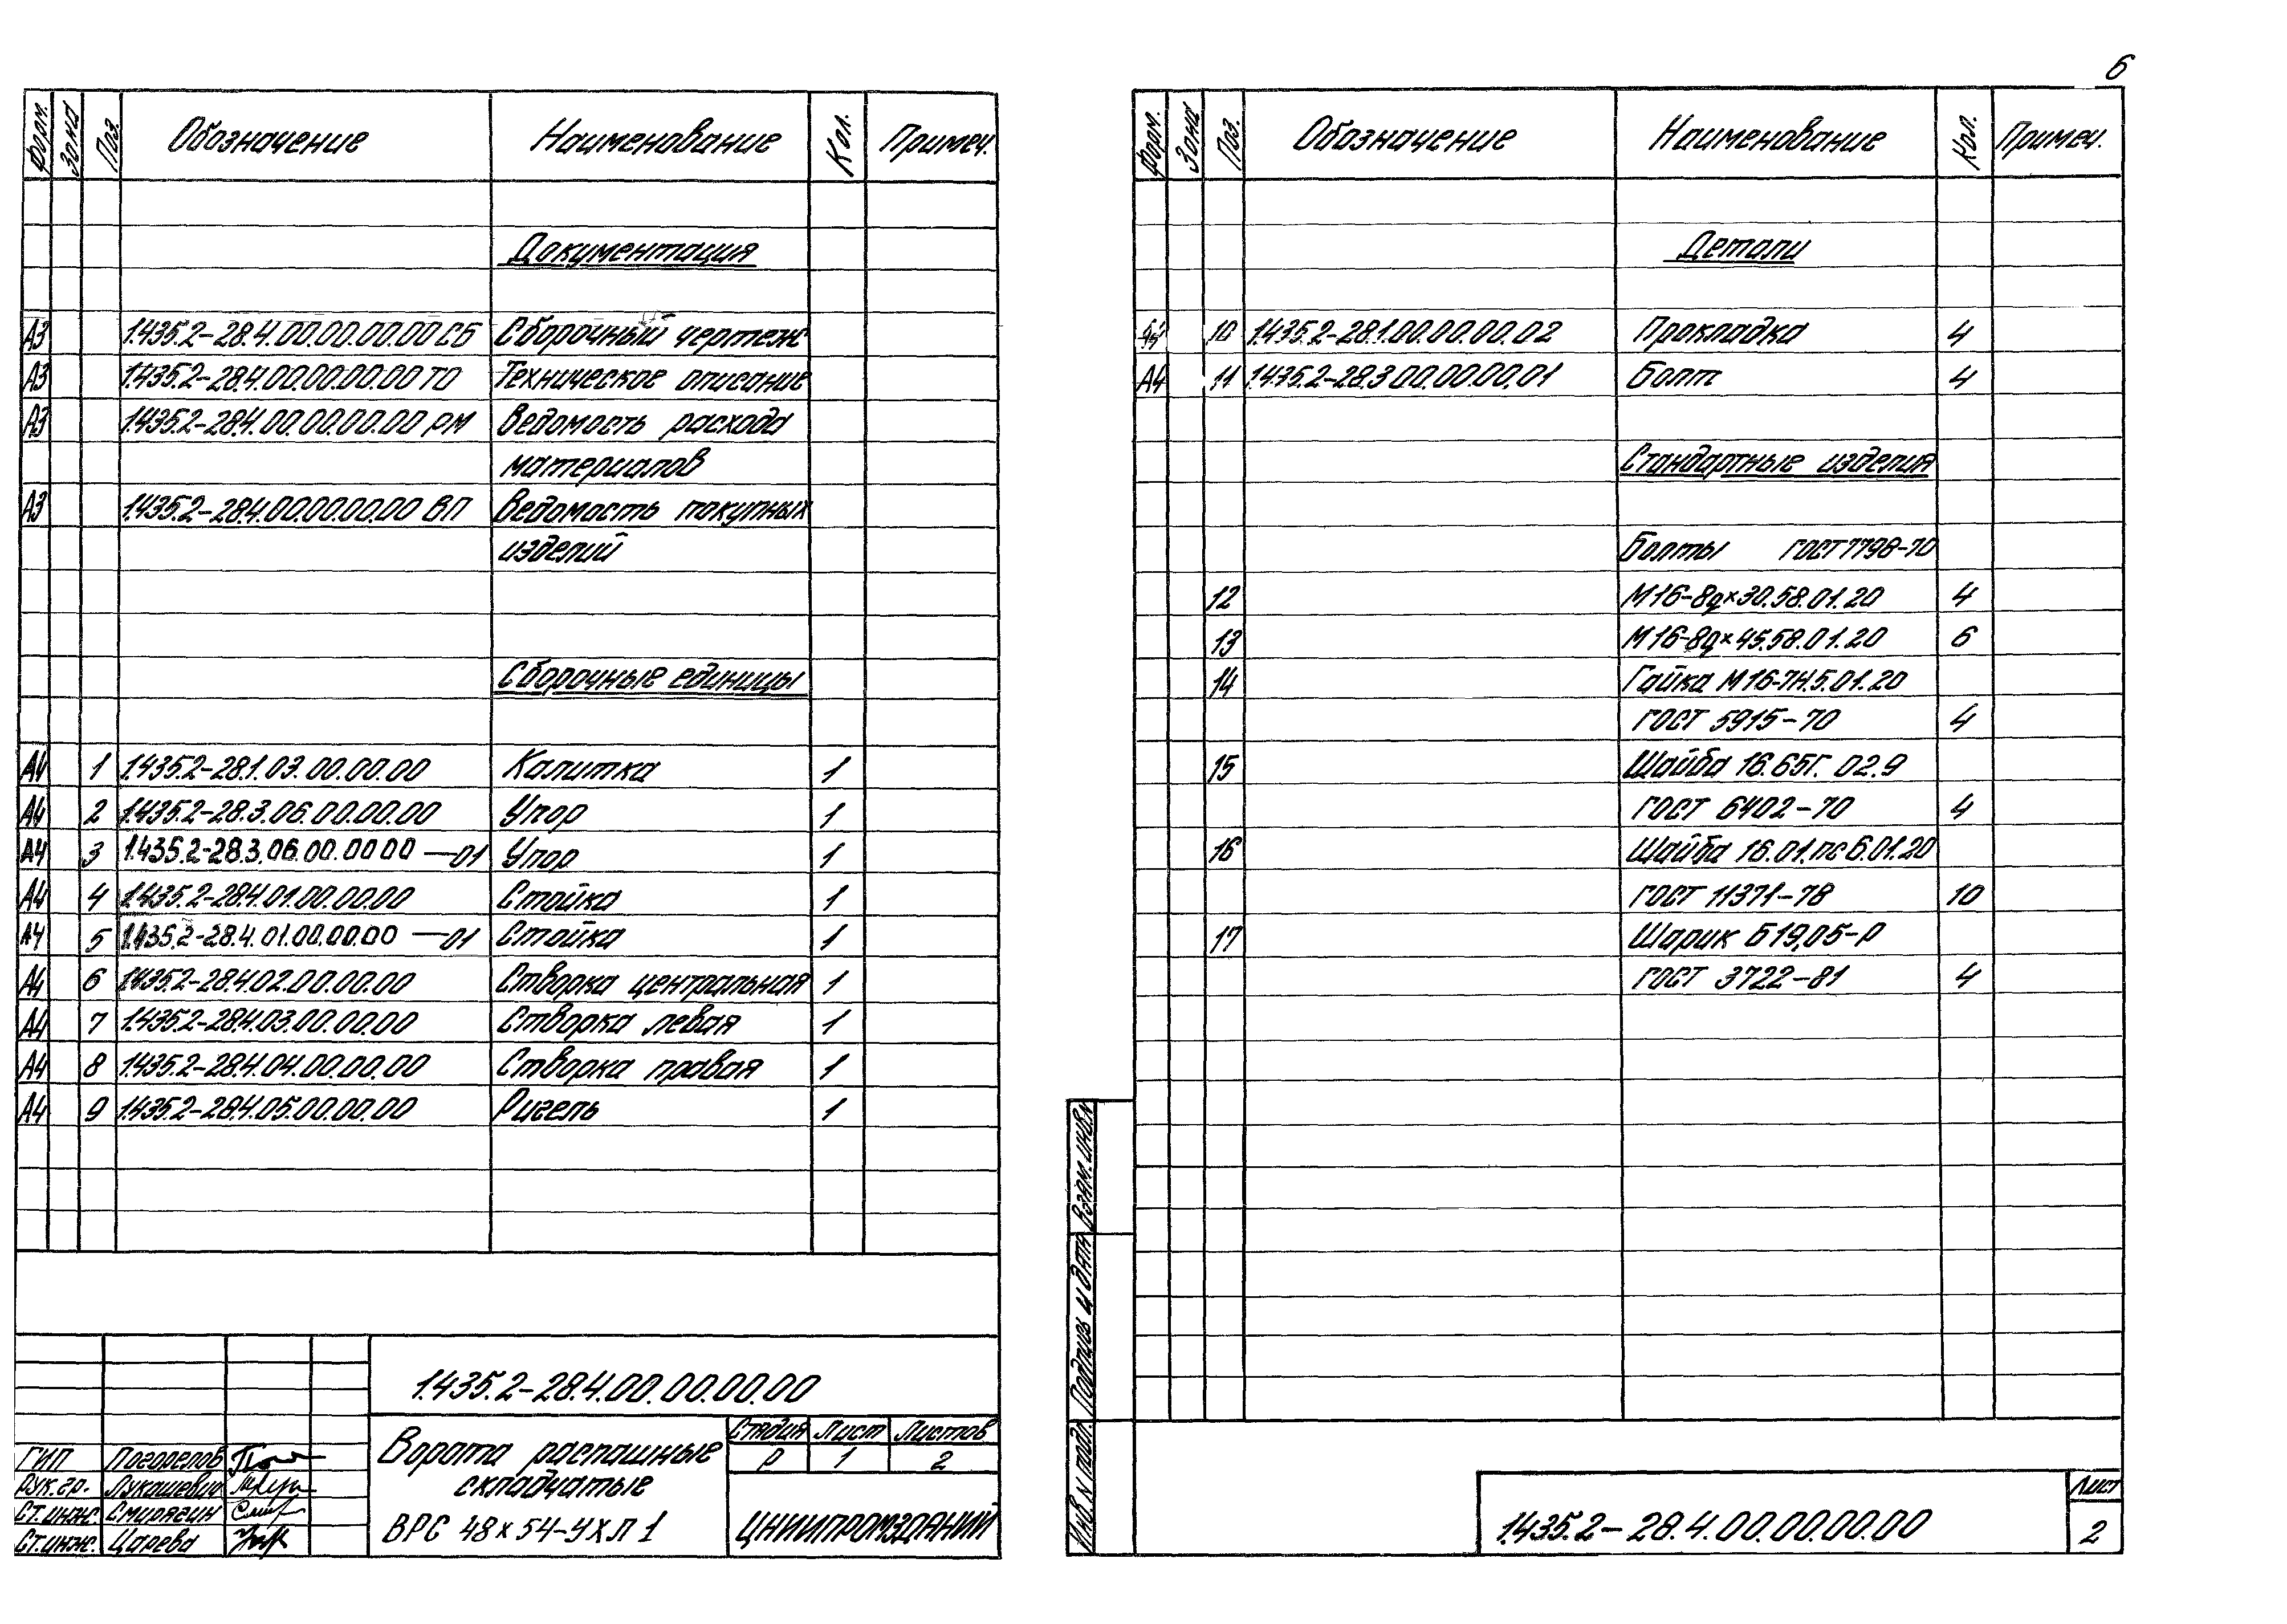 6
Форм. Зона Поз. Обозначение Наименование Кол. Примеч.
Документация
А3 1.435.2-28.4.00.00.00.00 СБ Сборочный чертеж
А3 1.435.2-28.4.00.00.00.00 ТО Техническое описание
А3 1.435.2-28.4.00.00.00.00 РМ Ведомость расхода
материалов
А3 1.435.2-28.4.00.00.00.00 ВП Ведомость покупных
изделий
Сборочные единицы
А4 1 1.435.2-28.1.03.00.00.00 Калитка 1
А4 2 1.435.2-28.3.06.00.00.00 Упор 1
А4 3 1.435.2-28.3.06.00.00.00 —01 Упор 1
А4 4 1.435.2-28.4.01.00.00.00 Стойка 1
А4 5 1.435.2-28.4.01.00.00.00 —01 Стойка 1
А4 6 1.435.2-28.4.02.00.00.00 Створка центральная 1
А4 7 1.435.2-28.4.03.00.00.00 Створка левая 1
А4 8 1.435.2-28.4.04.00.00.00 Створка правая 1
А4 9 1.435.2-28.4.05.00.00.00 Ригель 1
1.435.2-28.4.00.00.00.00
ГИП Погорелов
Рук.гр. Лукашевич
Ст.инж. Смирягин
Ст.инж. Царева
Ворота распашные
складчатые
ВРС 48×54-УХЛ1
Стадия Лист Листов
Р 1 2
ЦНИИПРОМЗДАНИЙ
Форм. Зона Поз. Обозначение Наименование Кол. Примеч.
Детали
10 1.435.2-28.1.00.00.00.02 Прокладка 4
А4 11 1.435.2-28.3.00.00.00.01 Болт 4
Стандартные изделия
Болты ГОСТ 7798-70
12 М16-8g×30.58.01.20 4
13 М16-8g×45.58.01.20 6
14 Гайка М16-7Н.5.01.20
ГОСТ 5915-70 4
15 Шайба 16.65Г.02.9
ГОСТ 6402-70 4
16 Шайба 16.01.пс6.01.20
ГОСТ 11371-78 10
17 Шарик Б19,05-Р
ГОСТ 3722-81 4
Взам. инв.№
Подпись и дата
Инв.№ подл.
1.435.2-28.4.00.00.00.00
Лист
2